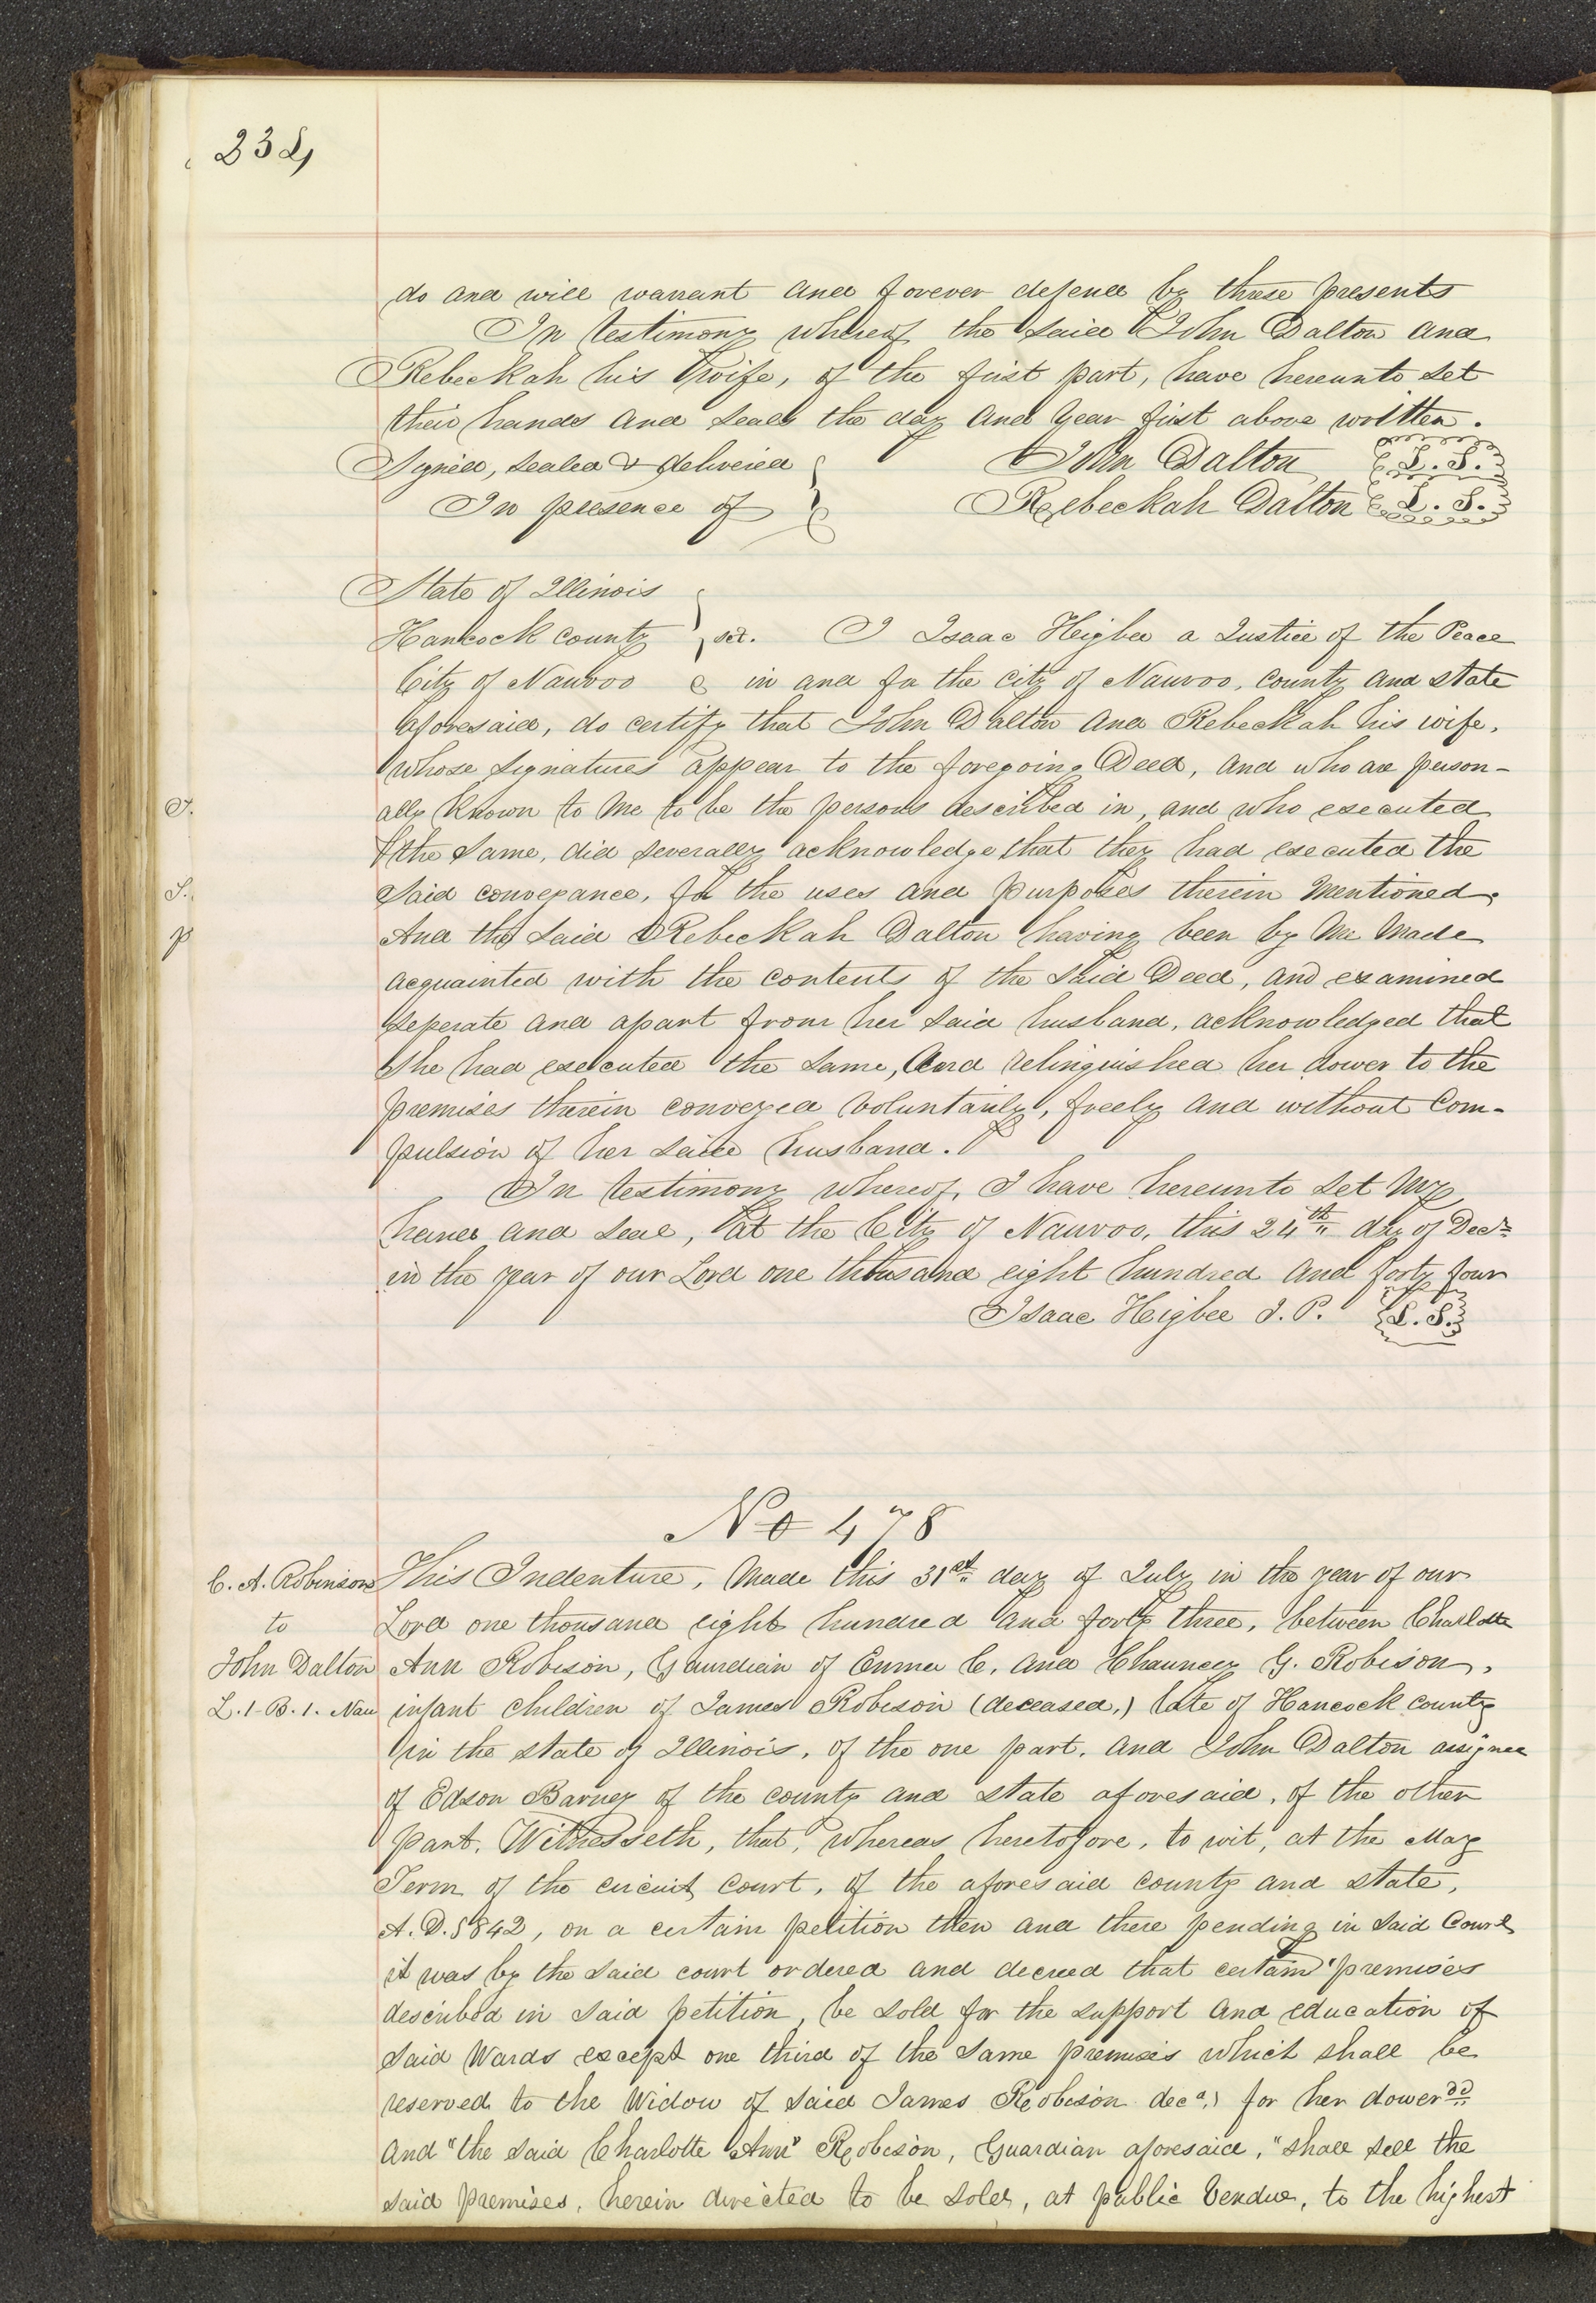 234
do and will warrant and forever defend by these presents
In testimony whereof, the said John Dalton and
Rebeckah his wife, of the first part, have hereunto set
their hands and seals the day and year first above written.
Signed, sealed & delivered John Dalton L. S.
In presence of Rebeckah Dalton L. S.
State of Illinois
Hancock county sct. I Isaac Heigbee a Justice of the Peace
City of Nauvoo in and for the city of Nauvoo, county and state
aforesaid, do certify that John Dalton and Rebeckah his wife,
whose signatures appear to the foregoing Deed, and who are person-
S. ally known to me to be the persons described in, and who executed
the same, did severally acknowledge that they had executed the
S. said conveyance, for the uses and purposes therein mentioned.
p And the said Rebeckah Dalton having been by me made
acquainted with the contents of the said Deed, and examined
seperate and apart from her said husband, acknowledged that
she had executed the same, and relinquished her dower to the
premises therein conveyed voluntarily, freely and without com-
pulsion of her said husband.
In testimony whereof, I have hereunto set my
hand and seal, at the City of Nauvoo, this 24th day of Decr
in the year of our Lord one thousand eight hundred and forty four
Isaac Heigbee J. P. L. S.
No 478
C. A. Robinson This Indenture, made this 31st day of July in the year of our
to Lord one thousand eight hundred and forty three, between Charlotte
John Dalton Ann Robison, Guardian of Emma C. and Chauncey G. Robison,
L. 1- B. 1. Nau infant children of James Robison (deceased,) late of Hancock county
in the state of Illinois, of the one part, and John Dalton assignee
of Edson Barney of the county and state aforesaid, of the other
part. Witnesseth, that, whereas heretofore, to wit, at the May
Term of the circuit court, of the aforesaid county and state,
A. D. 1842, on a certain petition then and there pending in said Court
it was by the said court ordered and decreed that certain premises
described in said petition, be sold for the support and education of
said Wards except one third of the same premises which shall be
reserved to the Widow of said James Robison decd,) for her dower"
and "the said Charlotte Ann" Robison, Guardian aforesaid, "shall sell the
said premises, herein directed to be sold, at public Vendue, to the highest